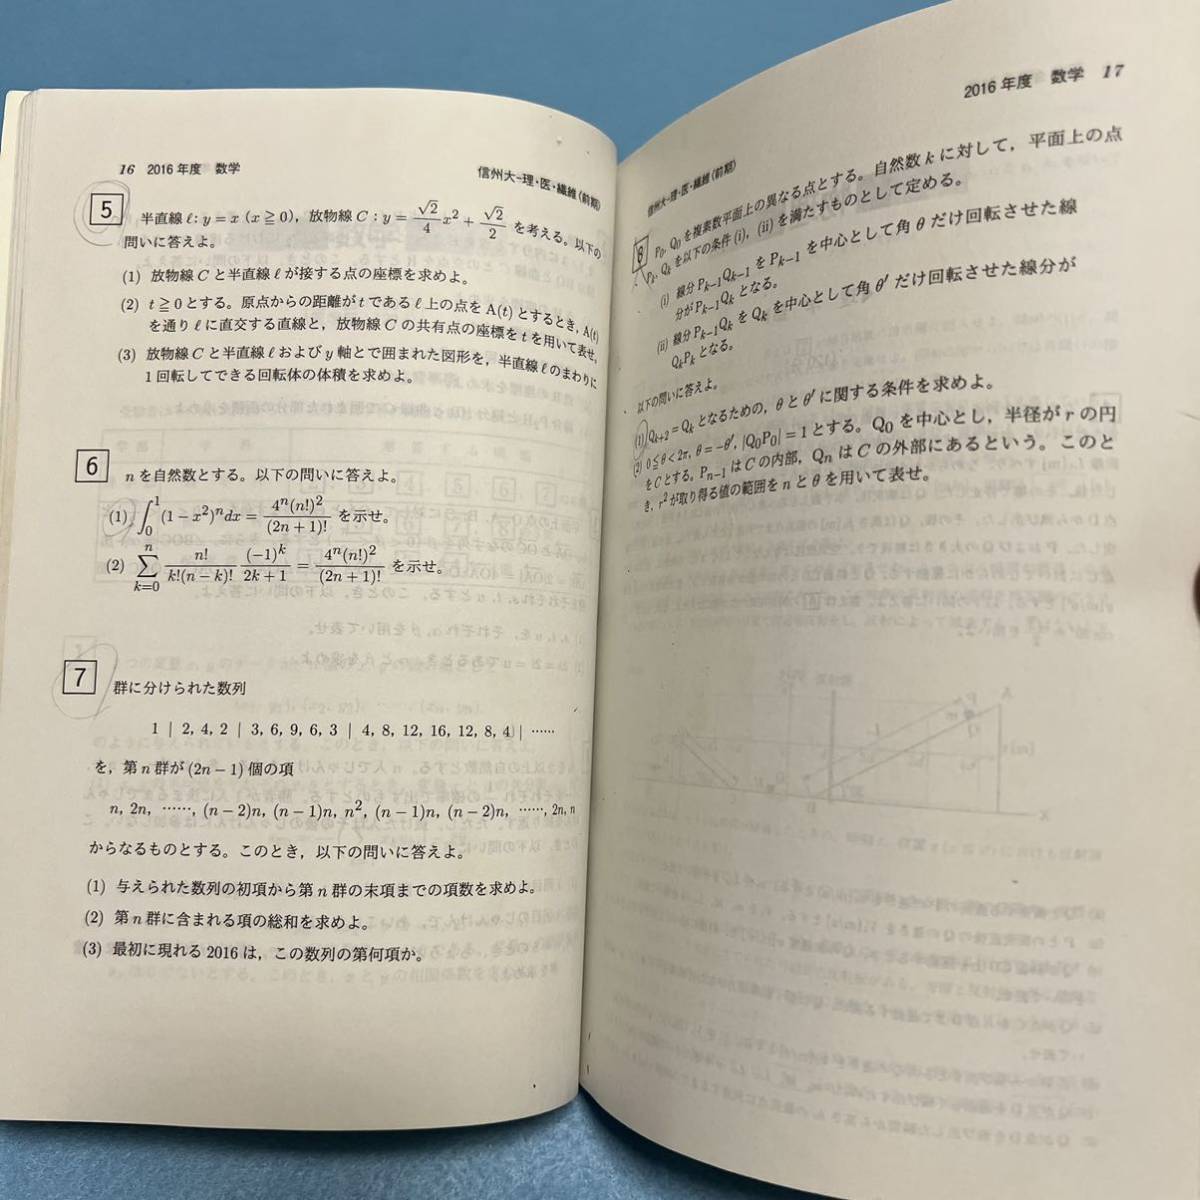 16 2016年度 数学 信州大-理・医・繊維(前期)
5 半直線ℓ: y = x (x ≧ 0),放物線C: y = √2/4 x² + √2/2 を考える。以下の
問いに答えよ。
(1) 放物線Cと半直線ℓが接する点の座標を求めよ。
(2) t ≧ 0とする。原点からの距離がtであるℓ上の点をA(t)とするとき,A(t)
を通りℓに直交する直線と,放物線Cの共有点の座標をtを用いて表せ。
(3) 放物線Cと半直線ℓおよびy軸とで囲まれた図形を,半直線ℓのまわりに
1回転してできる回転体の体積を求めよ。
6 nを自然数とする。以下の問いに答えよ。
(1) ∫₀¹(1−x²)ⁿdx = 4ⁿ(n!)²/(2n+1)! を示せ。
(2) Σ_{k=0}^{n} n!/(k!(n−k)!) (−1)ᵏ/(2k+1) = 4ⁿ(n!)²/(2n+1)! を示せ。
7 群に分けられた数列
1 | 2, 4, 2 | 3, 6, 9, 6, 3 | 4, 8, 12, 16, 12, 8, 4 | ……
を,第n群が(2n−1)個の項
n, 2n, ……, (n−2)n, (n−1)n, n², (n−1)n, (n−2)n, ……, 2n, n
からなるものとする。このとき,以下の問いに答えよ。
(1) 与えられた数列の初項から第n群の末項までの項数を求めよ。
(2) 第n群に含まれる項の総和を求めよ。
(3) 最初に現れる2016は,この数列の第何項か。
信州大-理・医・繊維(前期) 2016年度 数学 17
8 P₀, Q₀を複素数平面上の異なる点とする。自然数kに対して,平面上の点
Pₖ, Qₖを以下の条件(i), (ii)を満たすものとして定める。
(i) 線分Pₖ₋₁Qₖ₋₁をPₖ₋₁を中心として角θだけ回転させた線
分がPₖ₋₁Qₖとなる。
(ii) 線分Pₖ₋₁QₖをQₖを中心として角θ′だけ回転させた線分が
QₖPₖとなる。
以下の問いに答えよ。
(1) Qₖ₊₂ = Qₖとなるための,θとθ′に関する条件を求めよ。
(2) 0 ≦ θ < 2π, θ = −θ′, |Q₀P₀| = 1とする。Q₀を中心とし,半径がrの円
をCとする。Pₙ₋₁はCの内部,QₙはCの外部にあるという。このと
き,r²が取り得る値の範囲をnとθを用いて表せ。